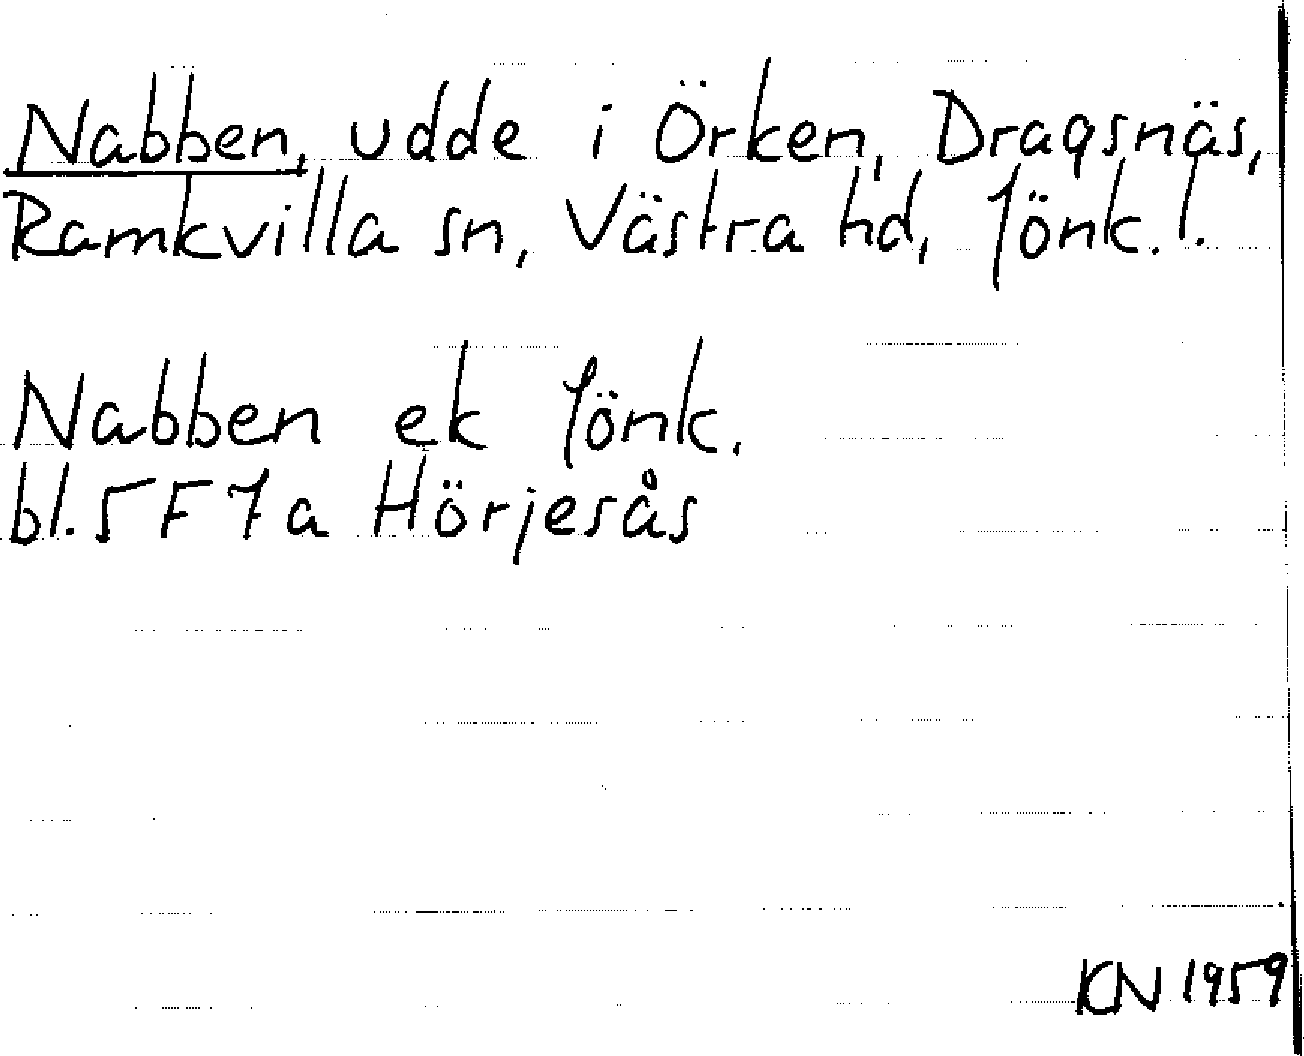 Nabben, udde i Örken, Dragsnäs,
Ramkvilla sn, Västra hd, Jönk. l.
Nabben ek Jönk.
bl. 5 F 7 a Hörjesås
KN 1959